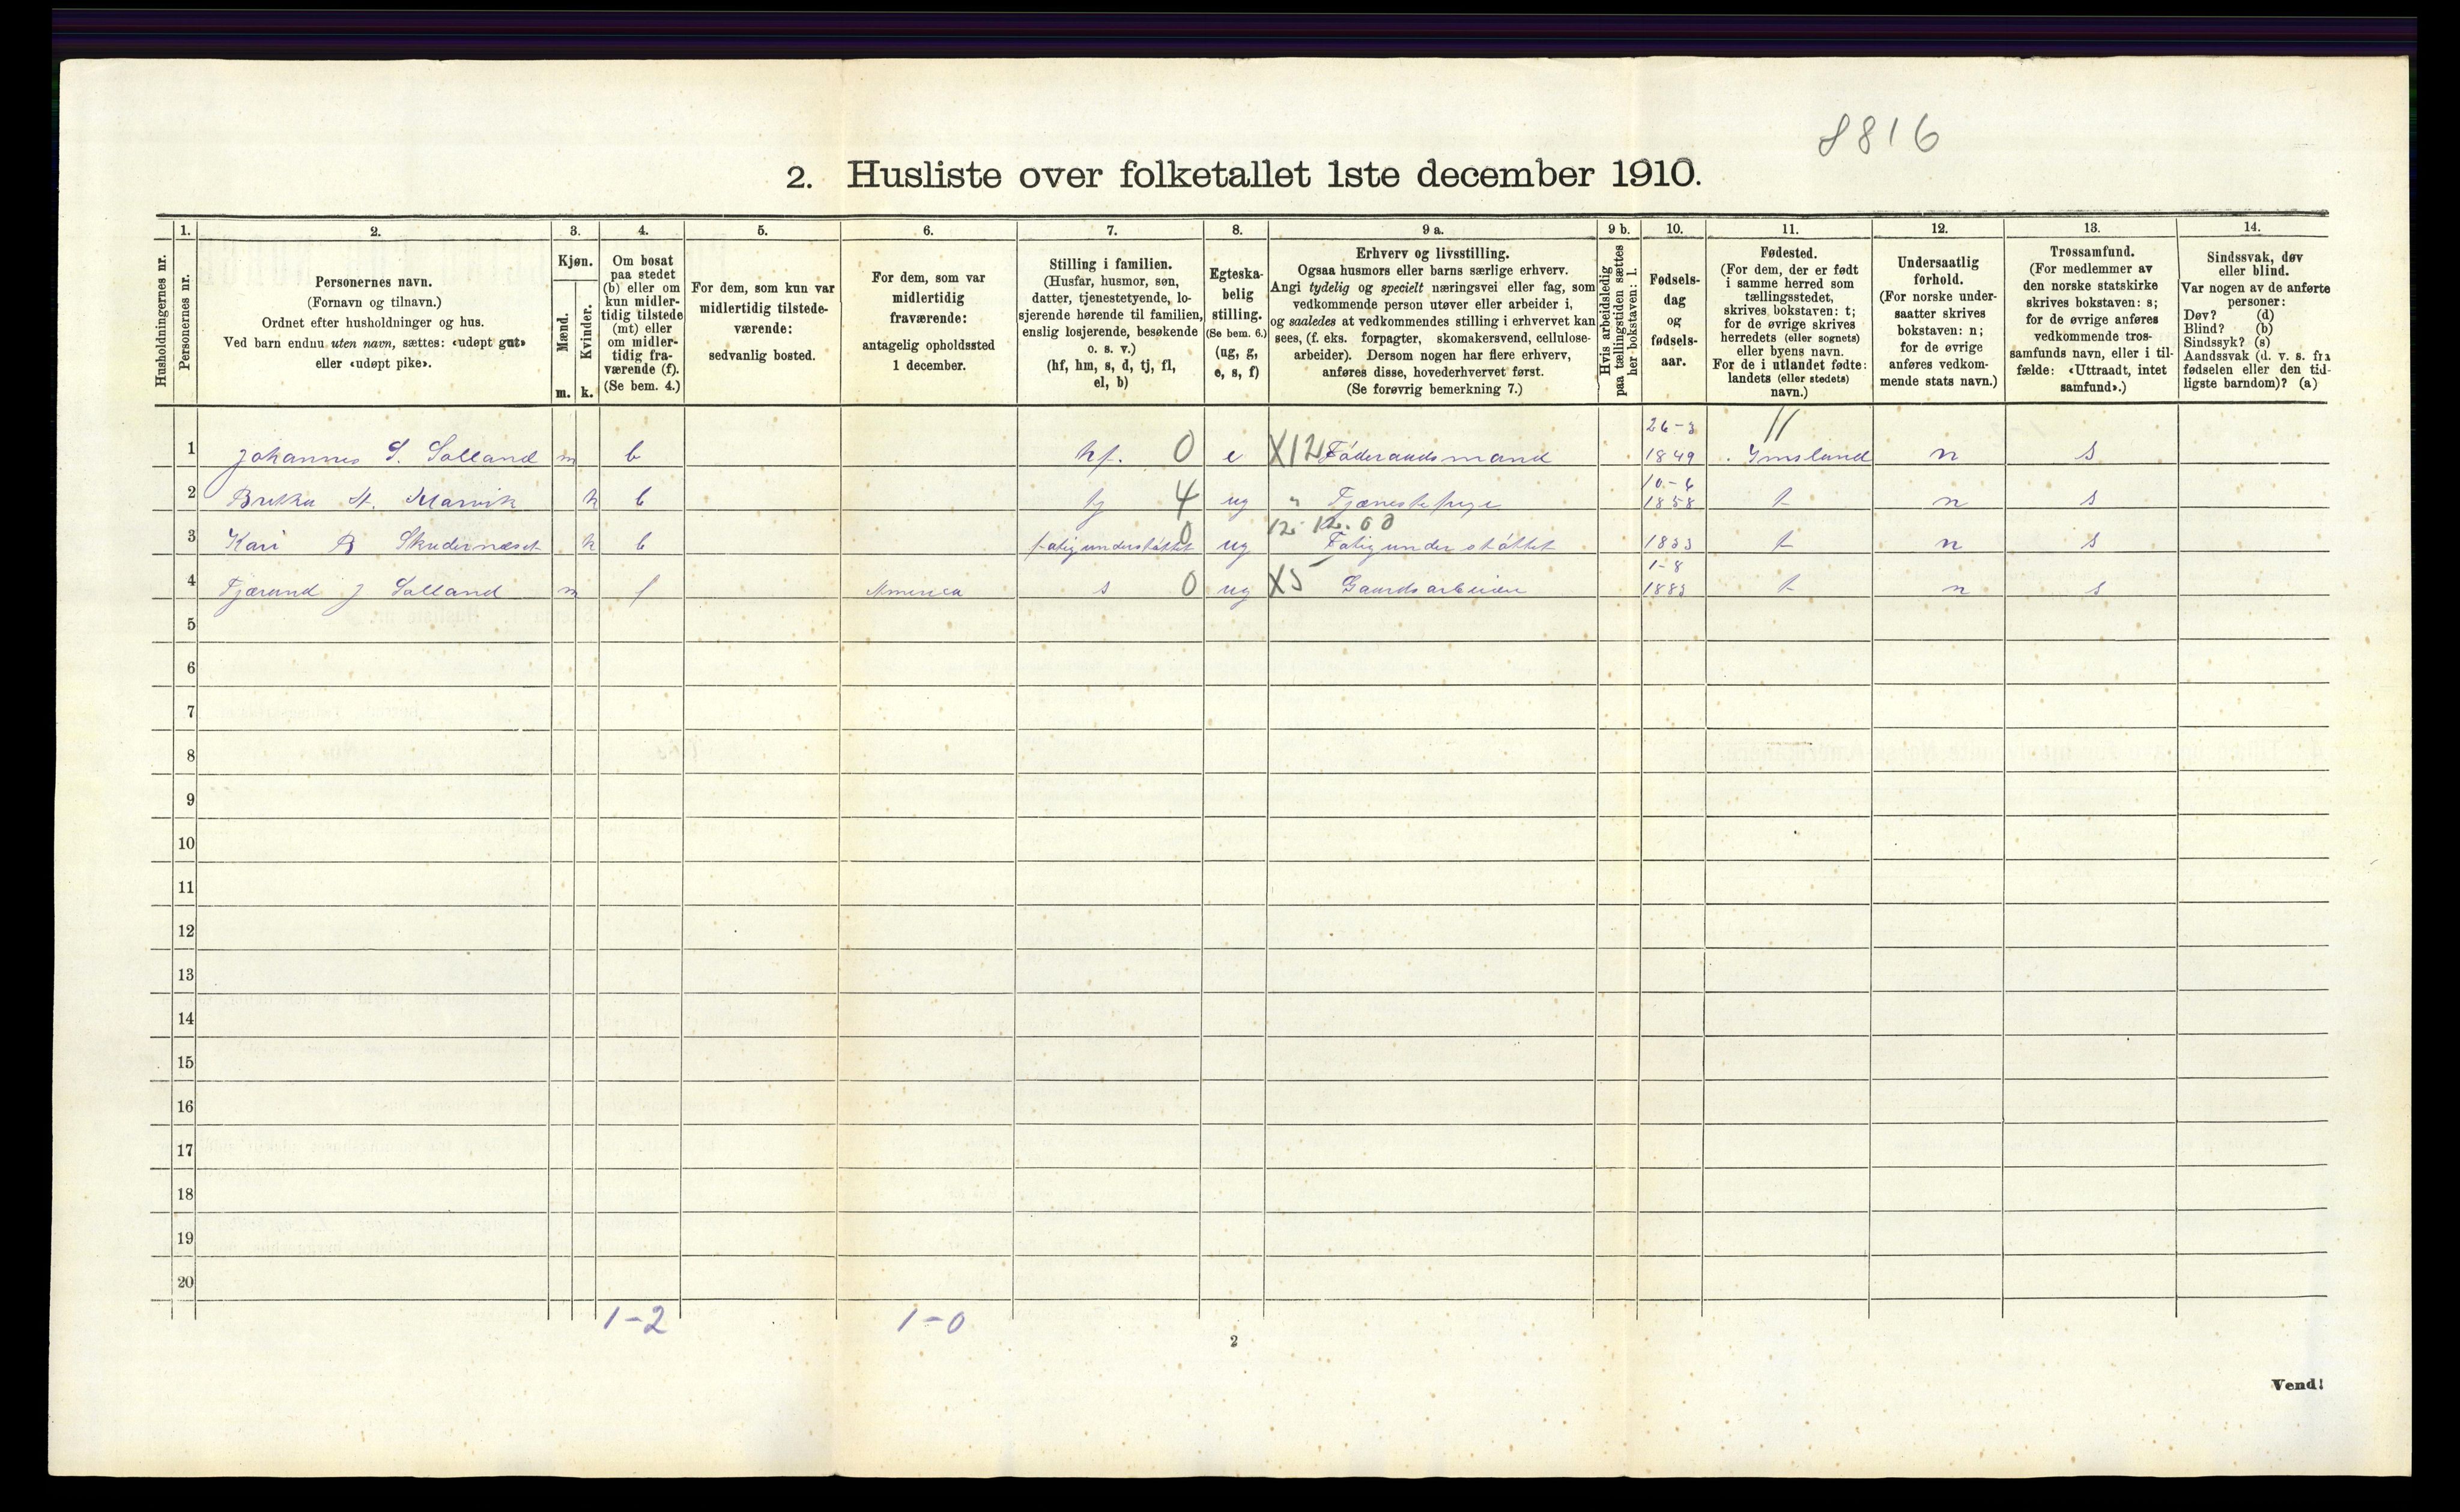 8816
2. Husliste over folketallet 1ste december 1910.
Husholdningernes nr.
1.
Personernes nr.
2.
Personernes navn.
(Fornavn og tilnavn.)
Ordnet efter husholdninger og hus.
Ved barn endnu uten navn, sættes: «udøpt gut»
eller «udøpt pike».
3.
Kjøn.
Mænd.
m.
Kvinder.
k.
4.
Om bosat
paa stedet
(b) eller om
kun midler-
tidig tilstede
(mt) eller
om midler-
tidig fra-
værende (f).
(Se bem. 4.)
5.
For dem, som kun var
midlertidig tilstede-
værende:
sedvanlig bosted.
6.
For dem, som var
midlertidig
fraværende:
antagelig opholdssted
1 december.
7.
Stilling i familien.
(Husfar, husmor, søn,
datter, tjenestetyende, lo-
sjerende hørende til familien,
enslig losjerende, besøkende
o. s. v.)
(hf, hm, s, d, tj, fl,
el, b)
8.
Egteska-
belig
stilling.
(Se bem. 6.)
(ug, g,
e, s, f)
9 a.
Erhverv og livsstilling.
Ogsaa husmors eller barns særlige erhverv.
Angi tydelig og specielt næringsvei eller fag, som
vedkommende person utøver eller arbeider i,
og saaledes at vedkommendes stilling i erhvervet kan
sees, (f. eks. forpagter, skomakersvend, cellulose-
arbeider). Dersom nogen har flere erhverv,
anføres disse, hovederhvervet først.
(Se forøvrig bemerkning 7.)
9 b.
Hvis arbeidsledig
paa tællingstiden sættes
her bokstaven: l.
10.
Fødsels-
dag
og
fødsels-
aar.
11.
Fødested.
(For dem, der er født
i samme herred som
tællingsstedet,
skrives bokstaven: t;
for de øvrige skrives
herredets (eller sognets)
eller byens navn.
For de i utlandet fødte:
landets (eller stedets)
navn.)
12.
Undersaatlig
forhold.
(For norske under-
saatter skrives
bokstaven: n;
for de øvrige
anføres vedkom-
mende stats navn.)
13.
Trossamfund.
(For medlemmer av
den norske statskirke
skrives bokstaven: s;
for de øvrige anføres
vedkommende tros-
samfunds navn, eller i til-
fælde: «Uttraadt, intet
samfund».)
14.
Sindssvak, døv
eller blind.
Var nogen av de anførte
personer:
Døv? (d)
Blind? (b)
Sindssyk? (s)
Aandssvak (d. v. s. fra
fødselen eller den tid-
ligste barndom)? (a)
1 Johannes S. Solland m b hf. 0 e X12 Føderaadsmand 26-3 1849 11 Imsland n s
2 Marvik k b tj 4 ug " 1858 t n s
3 Kari B Skudernæset k b fatigunderstøttet 0 ug 12. 12. 00 Fatigunderstøttet t n s
4 Tjærand J Solland m f America s 0 ug X5 Gaardsarbeider 1-8 1883 t n s
5
6
7
8
9
10
11
12
13
14
15
16
17
18
19
20
1-2 1-0
2
Vend!